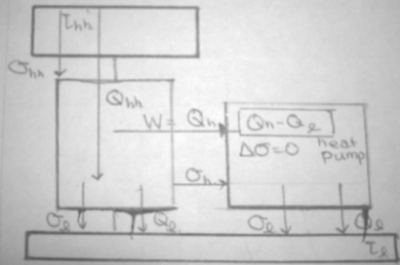 τhh
σhh
Qhh
W= Qh
Qh-Qℓ
Δσ=0 heat
pump
σh
σℓ Qℓ
σℓ Qℓ
τℓ